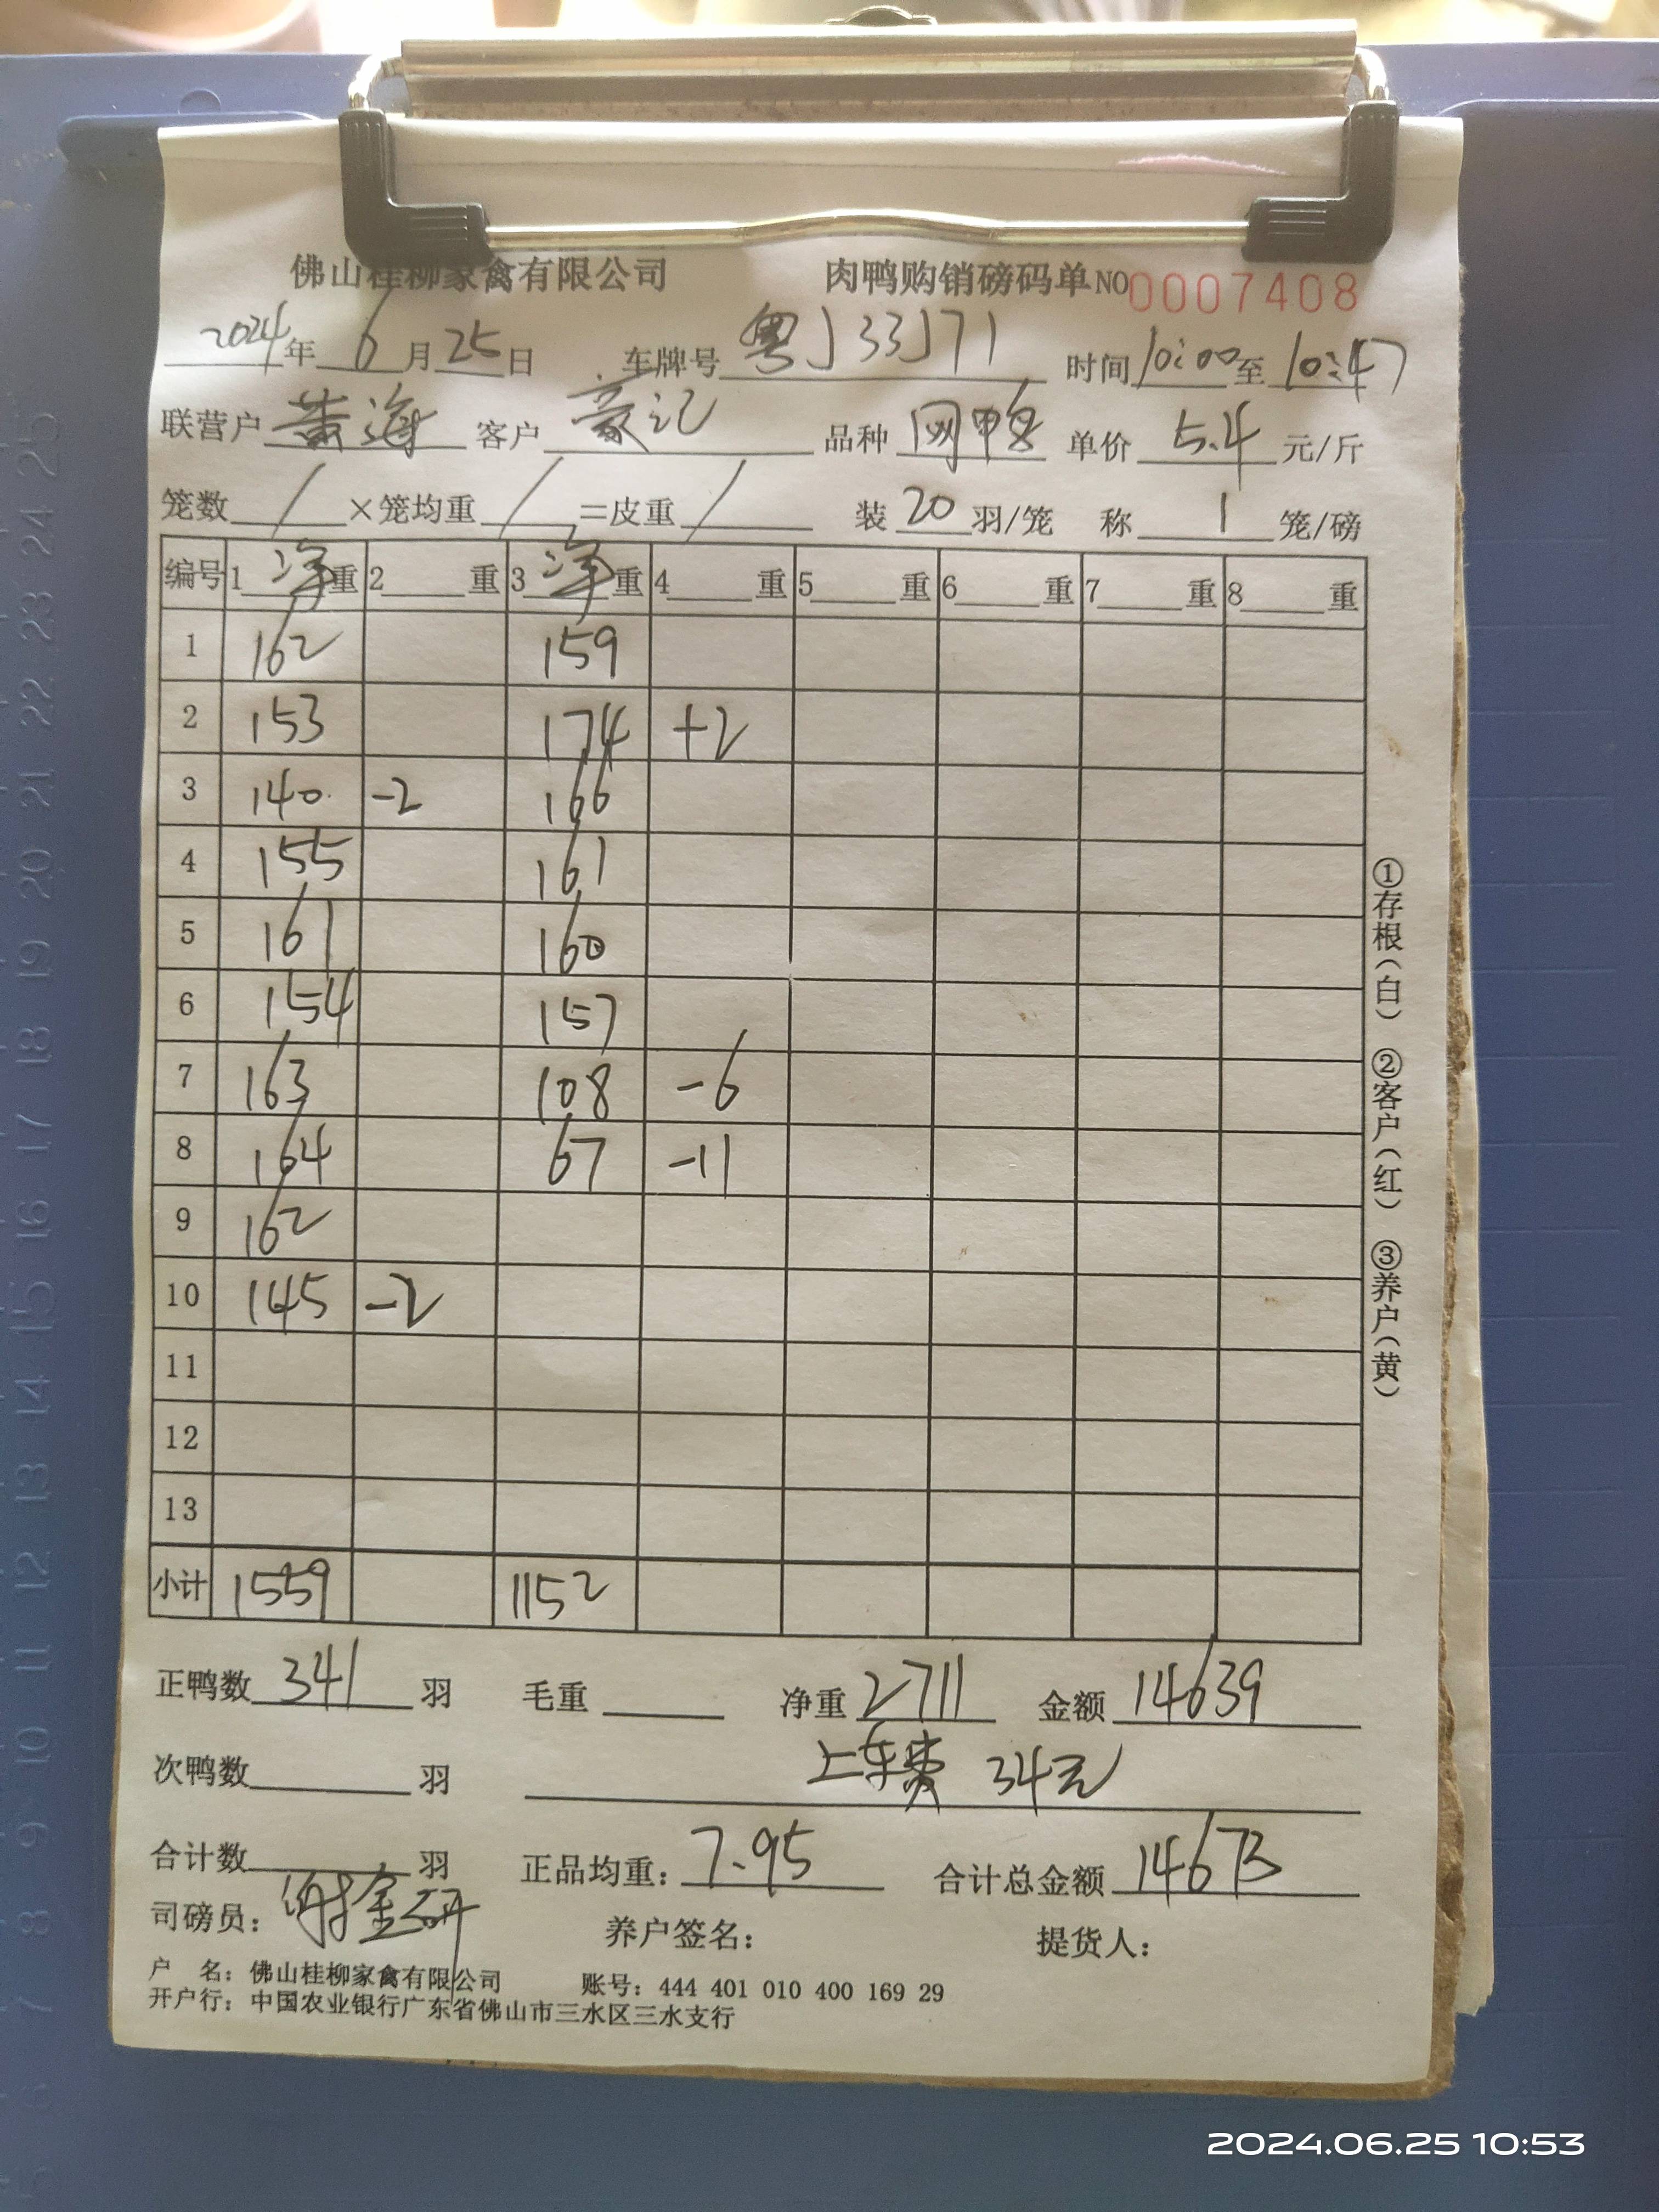 佛山桂柳家禽有限公司 肉鸭购销磅码单NO0007408
2024年6月25日 车牌号粤J33J71 时间10:00至10:47
联营户黄海 客户豪记 品种网鸭 单价5.4元/斤
笼数/×笼均重/=皮重/ 装20羽/笼 称1笼/磅
编号 1净重 2重 3净重 4重 5重 6重 7重 8重
1 162 159
2 153 174 +2
3 140 -2 166
4 155 161
5 161 160
6 154 157
7 163 108 -6
8 164 67 -11
9 162
10 145 -2
11
12
13
小计 1559 1152
正鸭数341羽 毛重 净重2711 金额14639
次鸭数 羽 上车费 34元
合计数 羽 正品均重：7.95 合计总金额14673
司磅员：谢金研 养户签名： 提货人：
户 名：佛山桂柳家禽有限公司 账号：444 401 010 400 169 29
开户行：中国农业银行广东省佛山市三水区三水支行
①存根（白） ②客户（红） ③养户（黄）
25
24
23
22
21
20
19
18
17
16
15
14
13
12
11
10
9
8
7
6
5
2024.06.25 10:53